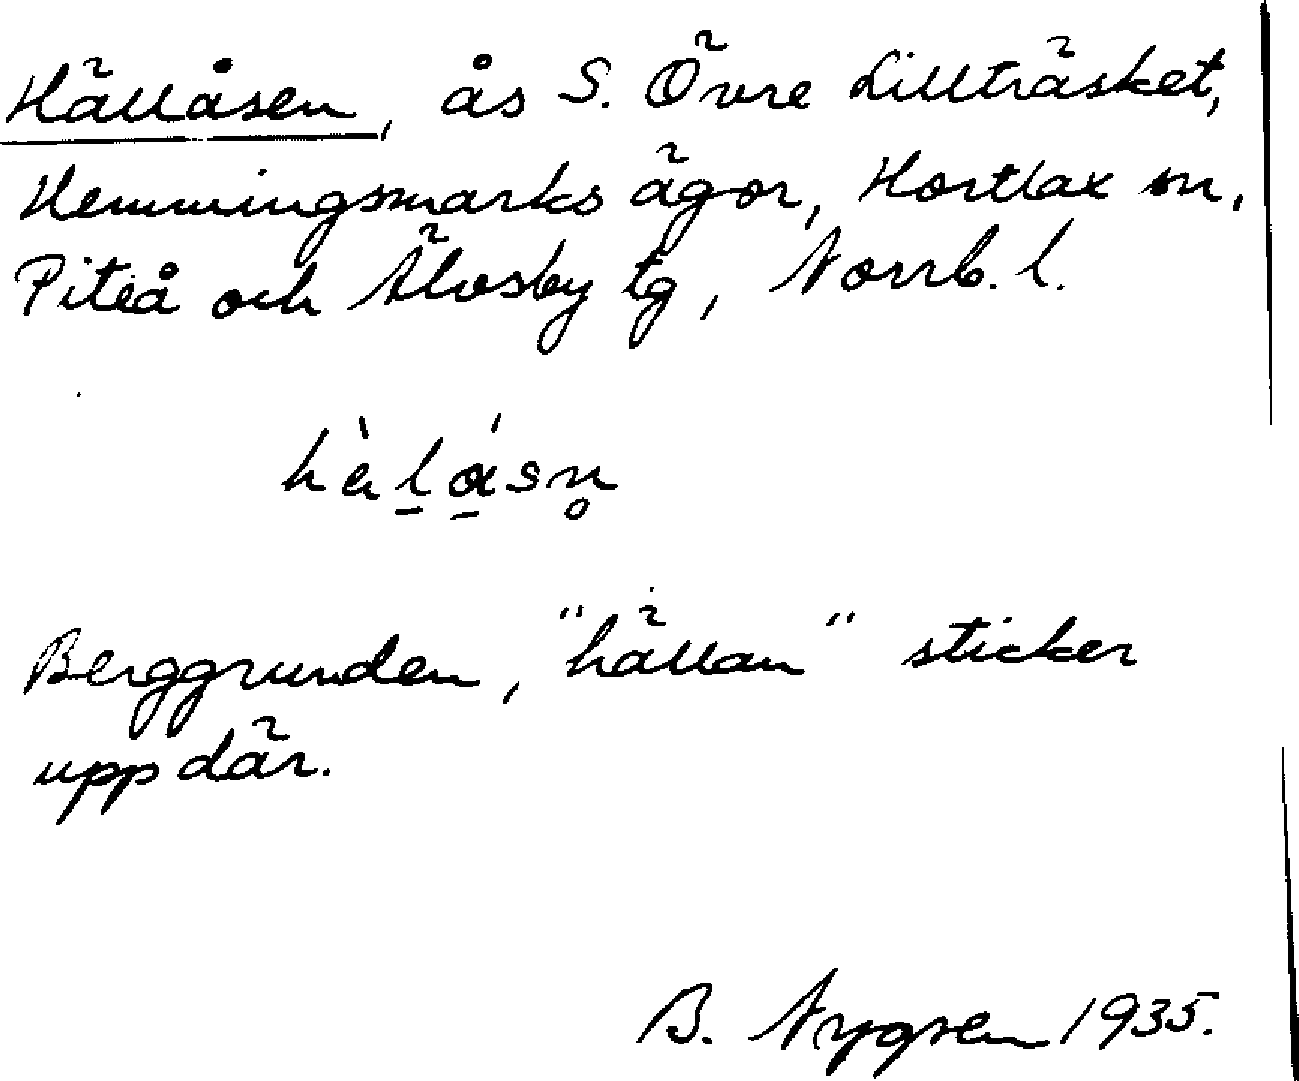 Hällåsen, ås S. Övre Lillträsket,
Hemmingsmarks ägor, Hortlax sn,
Piteå och Älvsby tg, Norrb. l.
Berggrunden, "hällan" sticker
upp där.
B. Nygren 1935.